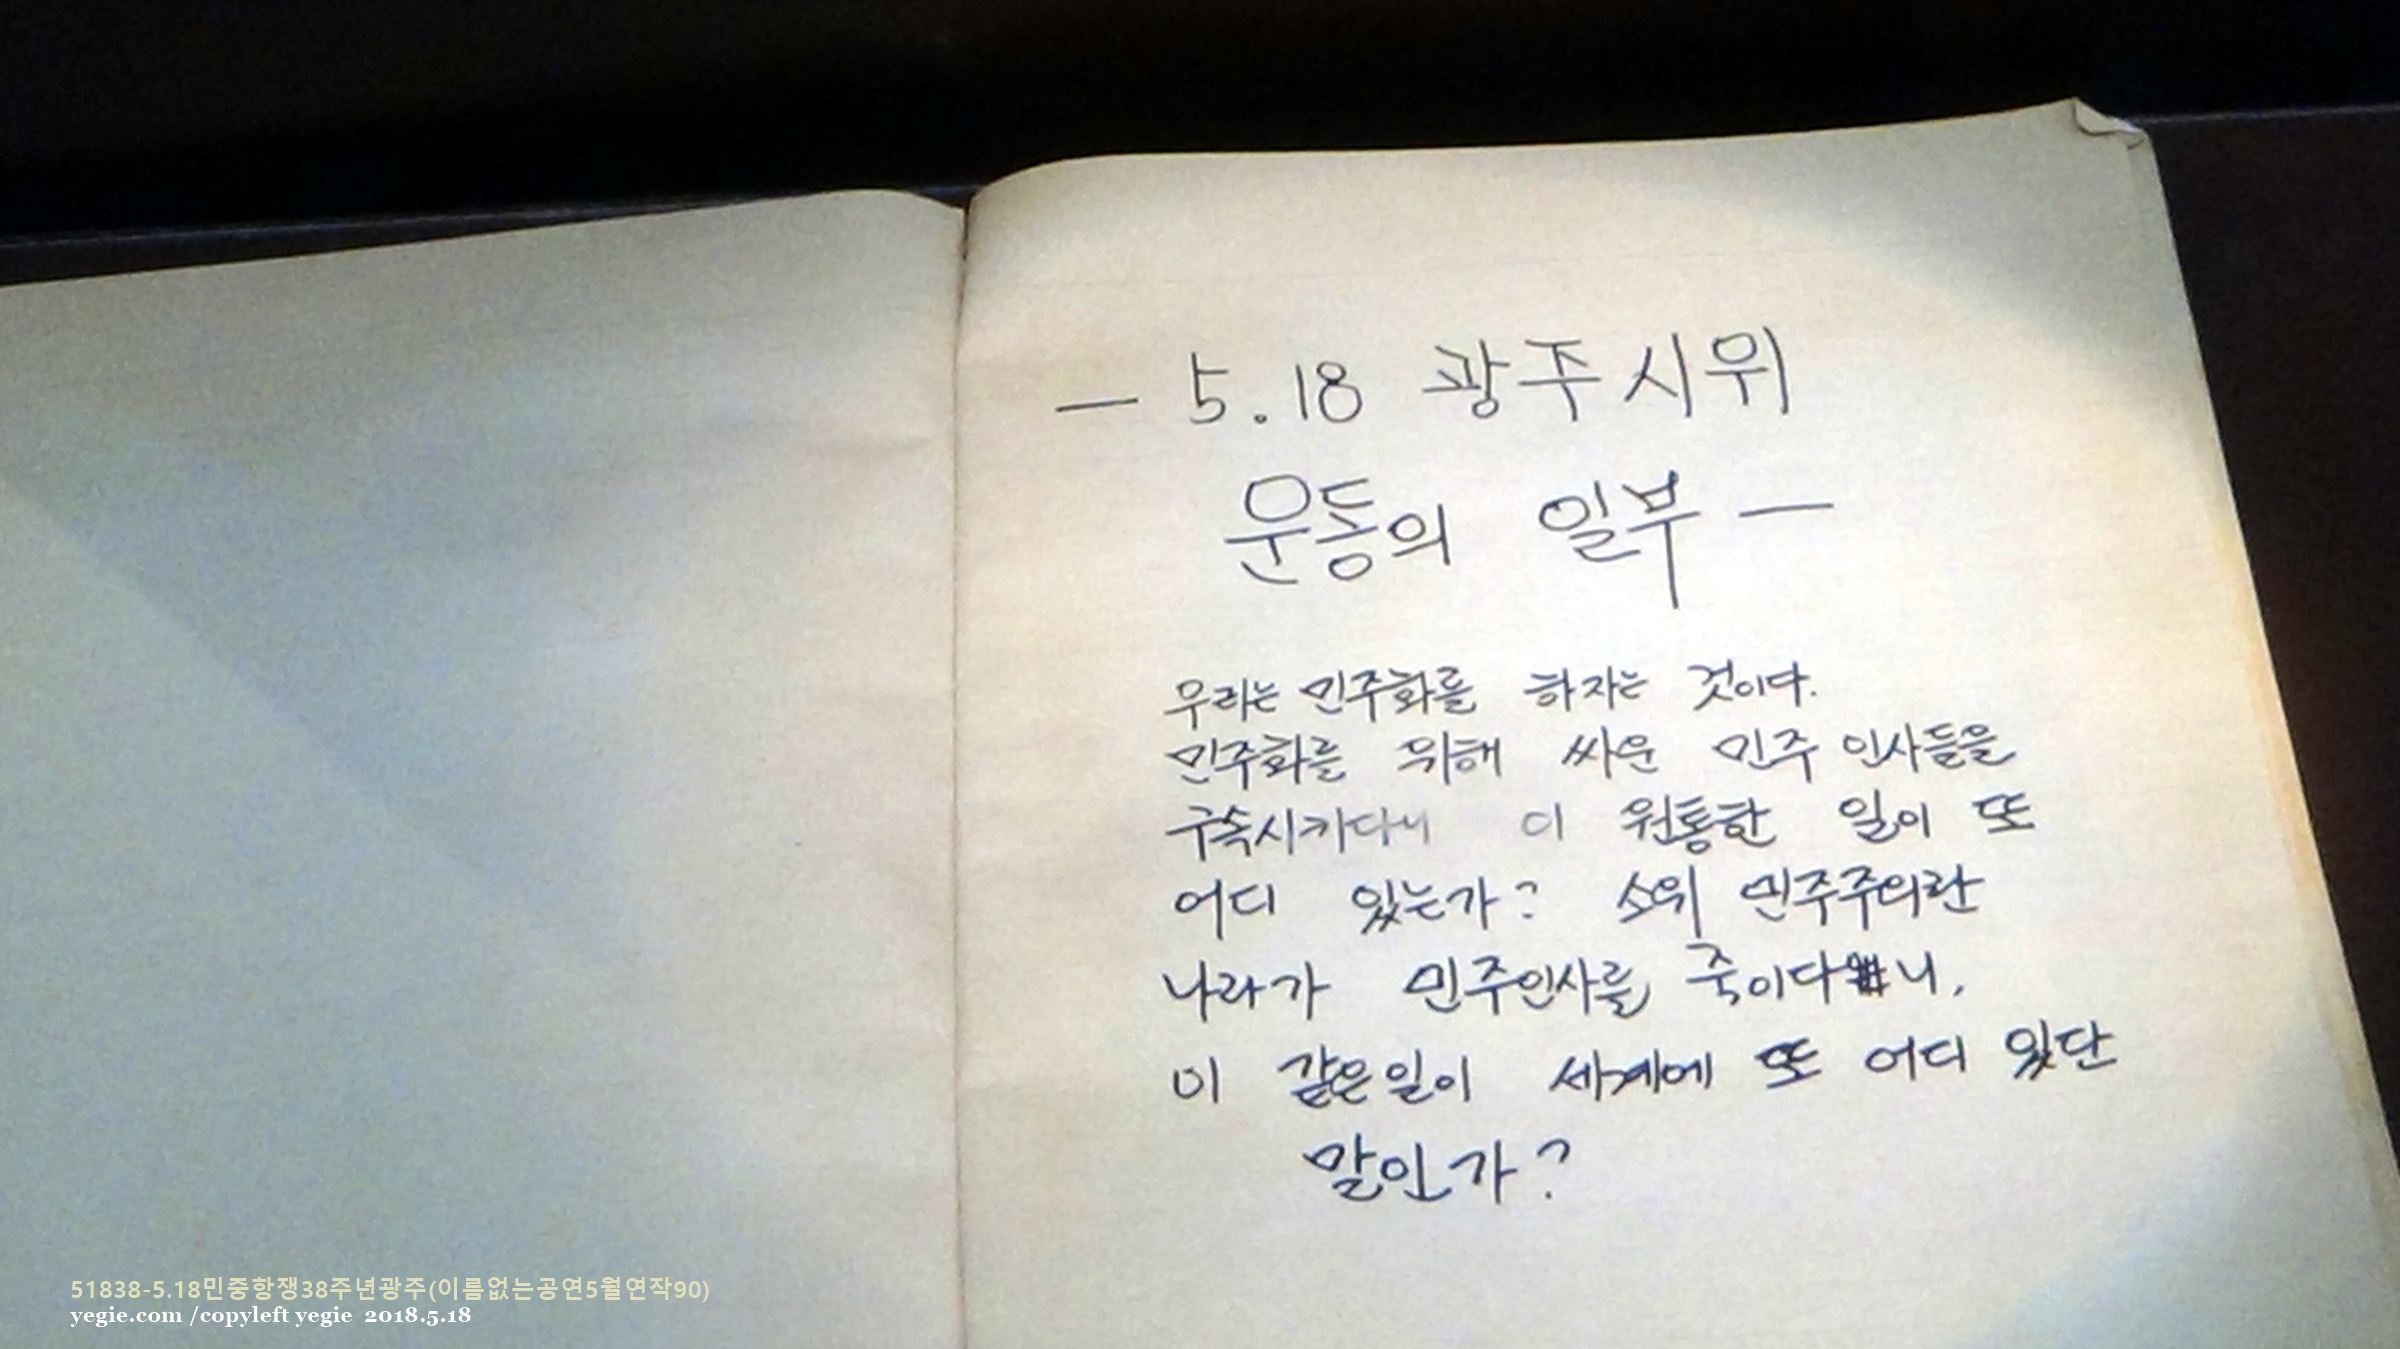 — 5.18 광주시위
운동의 일부 —
우리는 민주화를 하자는 것이다.
민주화를 위해 싸운 민주 인사들을
구속시키다니 이 원통한 일이 또
어디 있는가? 소위 민주주의란
나라가 민주인사를 죽이다니,
이 같은일이 세계에 또 어디 있단
말인가?
51838-5.18민중항쟁38주년광주(이름없는공연5월연작90)
yegie.com /copyleft yegie 2018.5.18